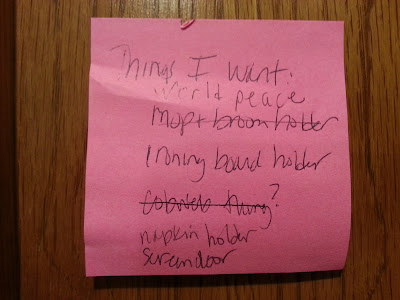 Things I want:
World peace
Mop + broom holder
Ironing board holder
thing?
napkin holder
Screendoor